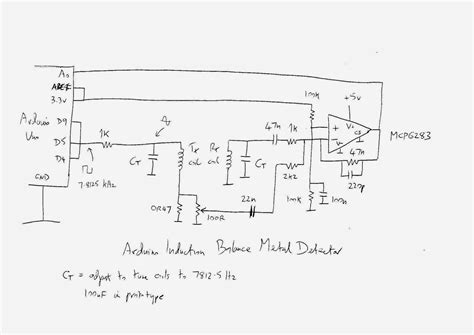 A0
AREF
3.3v
+5v
100k
Arduino
Uno
D9
D5
D4
1K
47n
1K
+
-
V+
V-
CS
MCP6283
CT
Tx
coil
Rx
coil
CT
2k2
47n
220p
7.8125 kHz
GND
0R47
100R
22n
100k
100n
Arduino Induction Balance Metal Detector
CT = adjust to tune coils to 7812.5 Hz
100nF in prototype